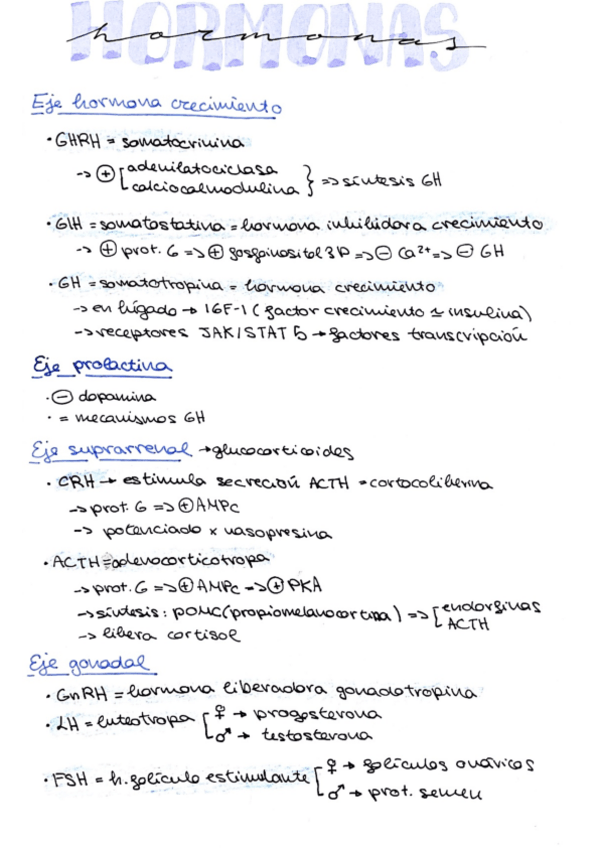 HORMONAS
hormonas
Eje hormona crecimiento
· GHRH = somatocrinina
-> ⊕ [adenilatociclasa
calciocalmodulina } => síntesis GH
· GIH = somatostatina = hormona inhibidora crecimiento
-> ⊕ prot. G => ⊕ fosfoinositol 3P => ⊖ Ca²⁺ => ⊖ GH
· GH = somatotropina = hormona crecimiento
-> en hígado → IGF-1 ( factor crecimiento 1 insulina)
-> receptores JAK/STAT 5 → factores transcripción
Eje prolactina
· ⊖ dopamina
· = mecanismos GH
Eje suprarrenal → glucocorticoides
· CRH → estimula secreción ACTH = cortocoliberina
-> prot. G => ⊕ AMPc
-> potenciado x vasopresina
· ACTH = adenocorticotropa
-> prot. G => ⊕ AMPc -> ⊕ PKA
-> síntesis: POMC (propiomelanocortina) => [endorfinas
ACTH
-> libera cortisol
Eje gonadal
· GnRH = hormona liberadora gonadotropina
· LH = luteotropa [ ♀ → progesterona
♂ → testosterona
· FSH = h. folículo estimulante [ ♀ → folículos ováricos
♂ → prot. semen